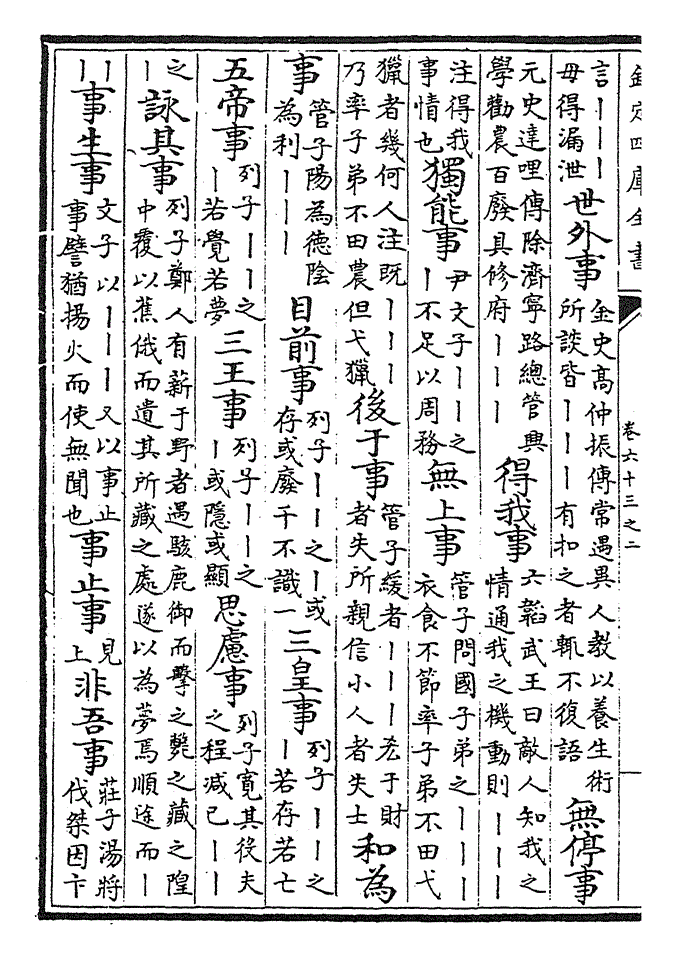 欽定四庫全書
卷六十三之二
言丨丨丨毋得漏泄世外事金史高仲振傳常遇異人教以養生術所談皆丨丨丨有扣之者輒不復語無停事
元史達哩傳除濟寧路總管興學勸農百廢具修府丨丨丨得我事六韜武王曰敵人知我之情通我之機動則丨丨丨
注得我事情也獨能事尹文子丨丨之丨不足以周務無上事管子問國子弟之丨丨丨衣食不節率子弟不田弋
獵者幾何人注既丨丨丨乃率子弟不田農但弋獵後于事管子緩者丨丨丨吝于財者失所親信小人者失士和為
事管子陽為德陰為利丨丨丨目前事列子丨丨之丨或存或廢千不識一三皇事列子丨丨之丨若存若亡
五帝事列子丨丨之丨若覺若夢三王事列子丨丨之丨或隱或顯思慮事列子寬其役夫之程減已丨丨
之丨詠其事列子鄭人有薪于野者遇駭鹿御而擊之斃之藏之隍中覆以蕉俄而遺其所藏之處遂以為夢焉順途而丨
丨丨丨事生事文子以丨丨丨又以事止事譬猶揚火而使無聞也事止事見上非吾事莊子湯將伐桀因卞